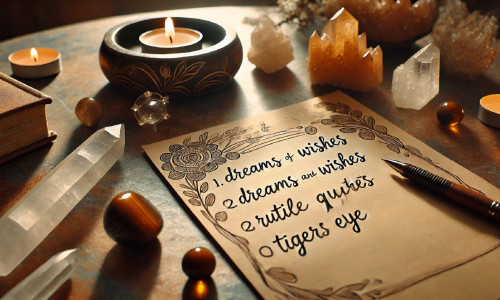 1. dreams of wishes
2 dreams and wishes
2 rutile quikes
0 tigers eye